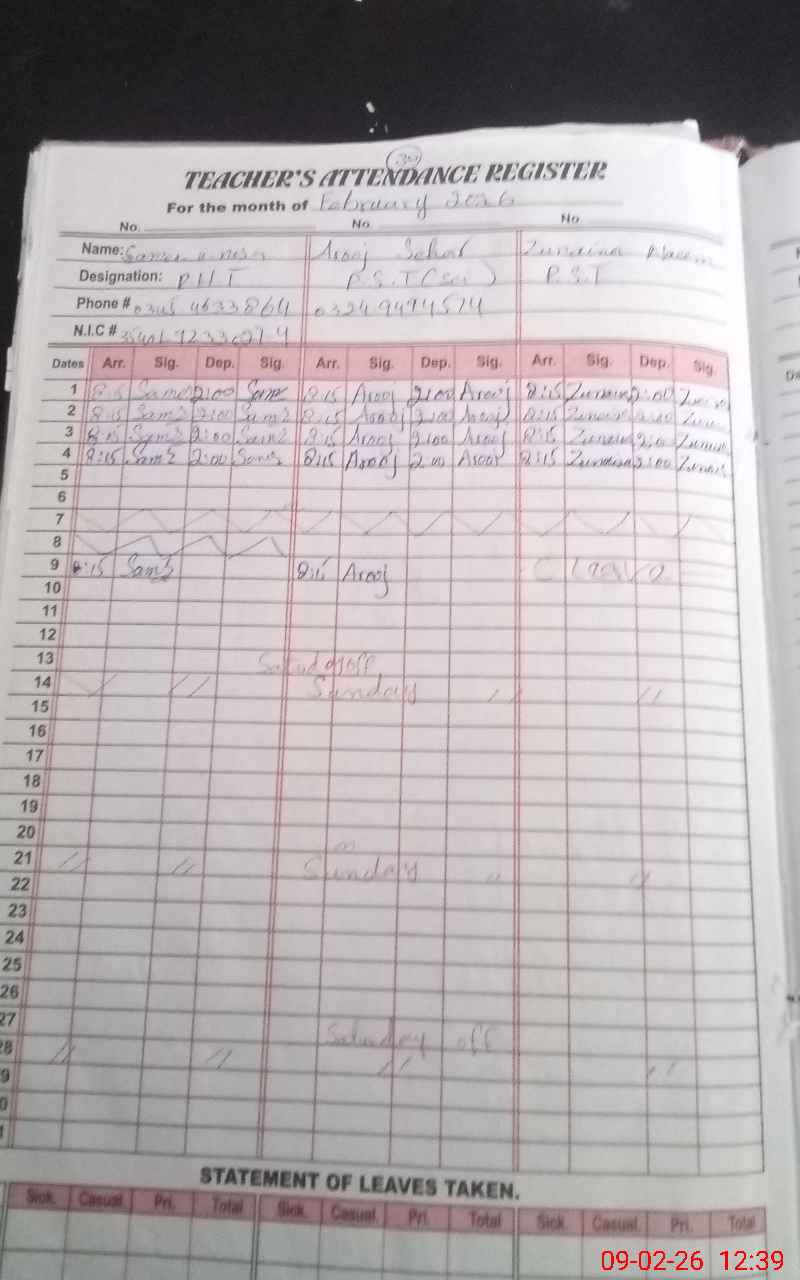 30
TEACHER'S ATTENDANCE REGISTER
For the month of February 2026
No. No. No.
Name: Arooj Sehar Zunaina
Designation: PHT P.S.T (Sci) P.S.T
Phone # 0345 4633864 0324 9474574
N.I.C #
Dates Arr. Sig. Dep. Sig. Arr. Sig. Dep. Sig. Arr. Sig. Dep. Sig.
1 8:15 Sam 2:00 Sam 8:15 Arooj 2:00 Arooj 8:15 Zunaina 2:00
2 8:15 Sam 2:00 Sam 8:15 Arooj 2:00 Arooj 8:15 Zunaina 2:00
3 8:15 Sam 2:00 Sam 8:15 Arooj 2:00 Arooj 8:15 Zunaina 2:00
4 8:15 Sam 2:00 Sam 8:15 Arooj 2:00 Arooj 8:15 Zunaina 2:00
5
6
7
8
9 8:15 Sam 8:15 Arooj C leave
10
11
12
13
Saturday off
14 Sunday
15
16
17
18
19
20
21 Sunday
22
23
24
25
26
27
Saturday off
28
9
0
1
STATEMENT OF LEAVES TAKEN.
Sick. Casual. Pri. Total Sick. Casual. Pri. Total Sick. Casual. Pri. Total
09-02-26 12:39